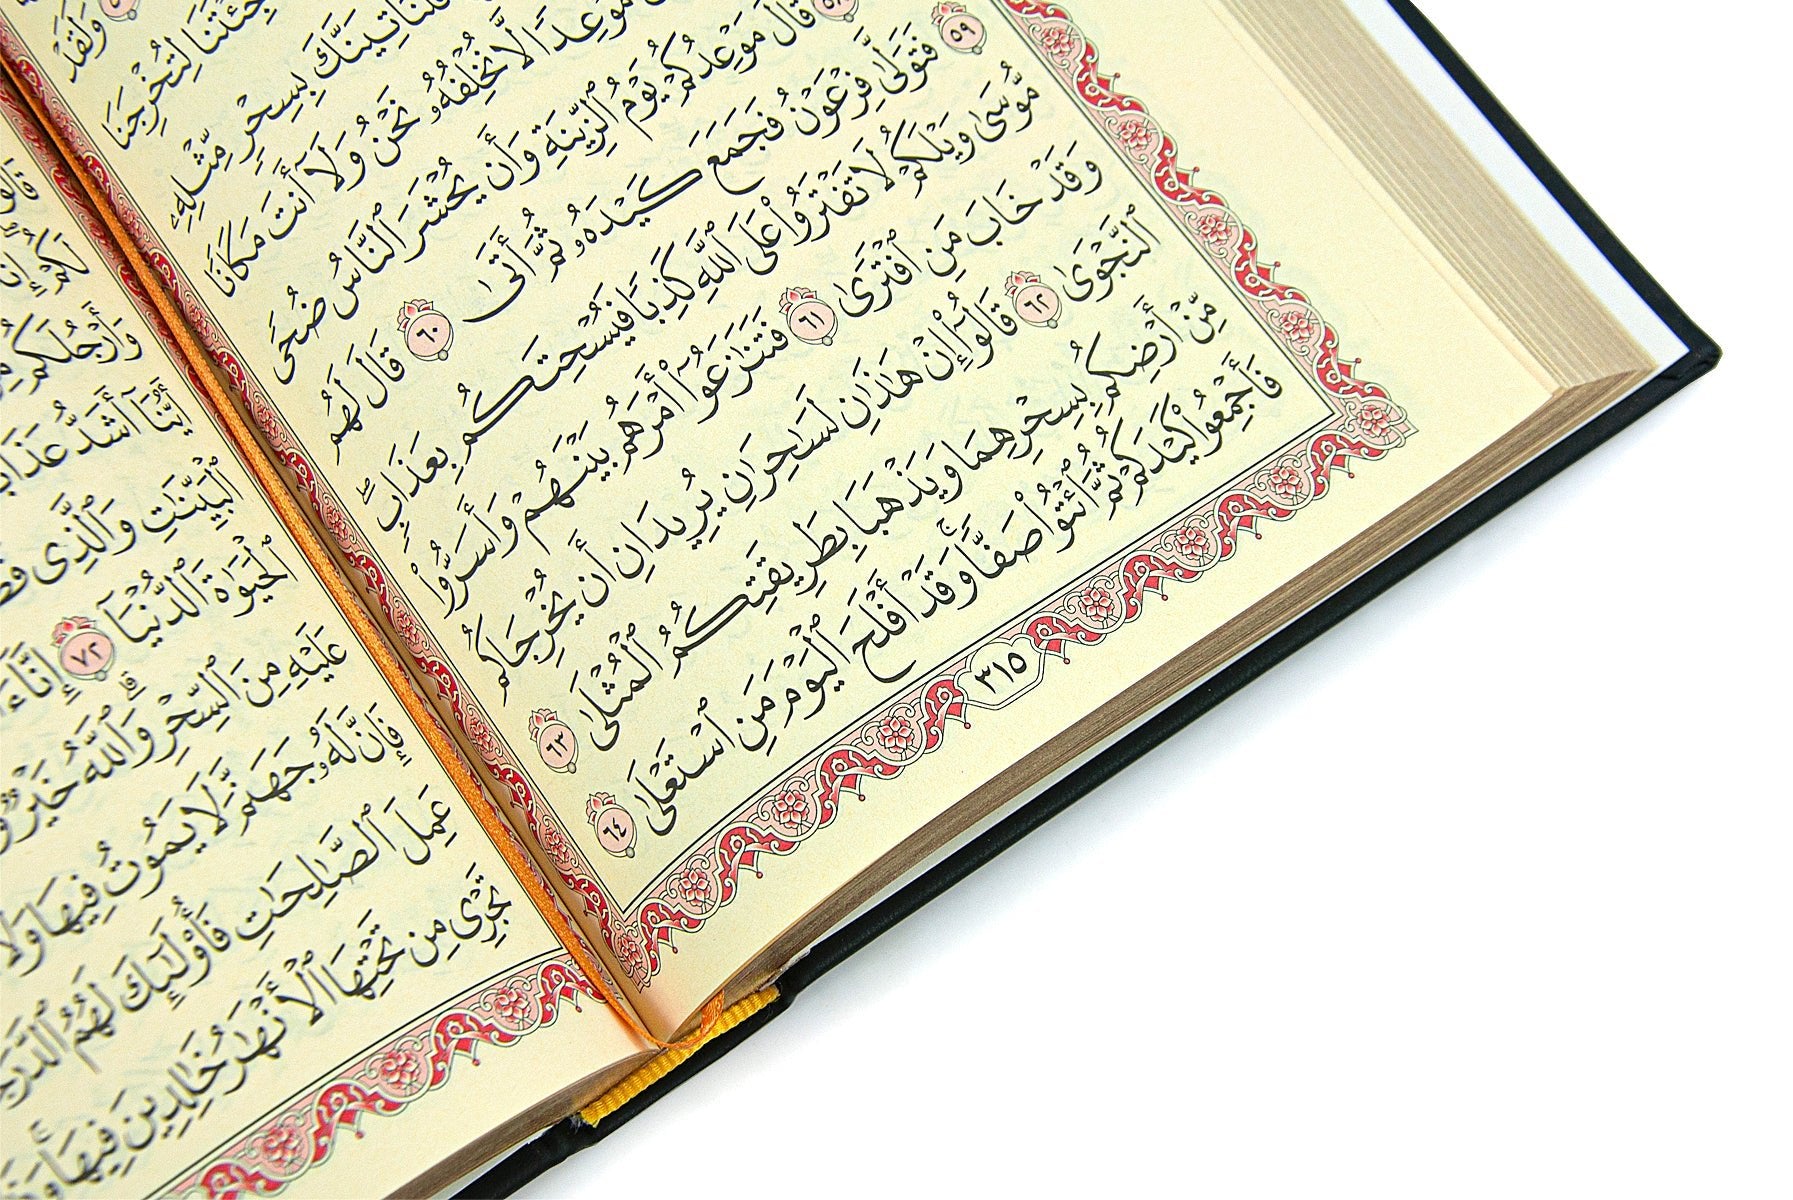 وَلَقَدْ
لِتُخْرِجَنَا
فَلَنَأْتِيَنَّكَ بِسِحْرٍ مِّثْلِهِۦ
مَوْعِدًا لَّا نُخْلِفُهُۥ نَحْنُ وَلَآ أَنتَ مَكَانًا
٥٨ قَالَ مَوْعِدُكُمْ يَوْمُ ٱلزِّينَةِ وَأَن يُحْشَرَ ٱلنَّاسُ ضُحًى
٥٩ فَتَوَلَّىٰ فِرْعَوْنُ فَجَمَعَ كَيْدَهُۥ ثُمَّ أَتَىٰ ٦٠ قَالَ لَهُم
مُّوسَىٰ وَيْلَكُمْ لَا تَفْتَرُوا۟ عَلَى ٱللَّهِ كَذِبًا فَيُسْحِتَكُم بِعَذَابٍ ۖ
وَقَدْ خَابَ مَنِ ٱفْتَرَىٰ ٦١ فَتَنَٰزَعُوٓا۟ أَمْرَهُم بَيْنَهُمْ وَأَسَرُّوا۟
ٱلنَّجْوَىٰ ٦٢ قَالُوٓا۟ إِنْ هَٰذَٰنِ لَسَٰحِرَٰنِ يُرِيدَانِ أَن يُخْرِجَاكُم
مِّنْ أَرْضِكُم بِسِحْرِهِمَا وَيَذْهَبَا بِطَرِيقَتِكُمُ ٱلْمُثْلَىٰ ٦٣
فَأَجْمِعُوا۟ كَيْدَكُمْ ثُمَّ ٱئْتُوا۟ صَفًّا ۚ وَقَدْ أَفْلَحَ ٱلْيَوْمَ مَنِ ٱسْتَعْلَىٰ ٦٤
٣١٥
لَكُمْ
وَأَرْجُلَكُم
أَيُّنَآ أَشَدُّ
ٱلْبَيِّنَٰتِ وَٱلَّذِى
ٱلْحَيَوٰةَ ٱلدُّنْيَآ ٧٢ إِنَّآ
عَلَيْهِ مِنَ ٱلسِّحْرِ ۗ وَٱللَّهُ خَيْرٌ
فَإِنَّ لَهُۥ جَهَنَّمَ لَا يَمُوتُ فِيهَا وَلَا
عَمِلَ ٱلصَّٰلِحَٰتِ فَأُو۟لَٰٓئِكَ لَهُمُ
تَجْرِى مِن تَحْتِهَا ٱلْأَنْهَٰرُ خَٰلِدِينَ فِيهَا ۚ